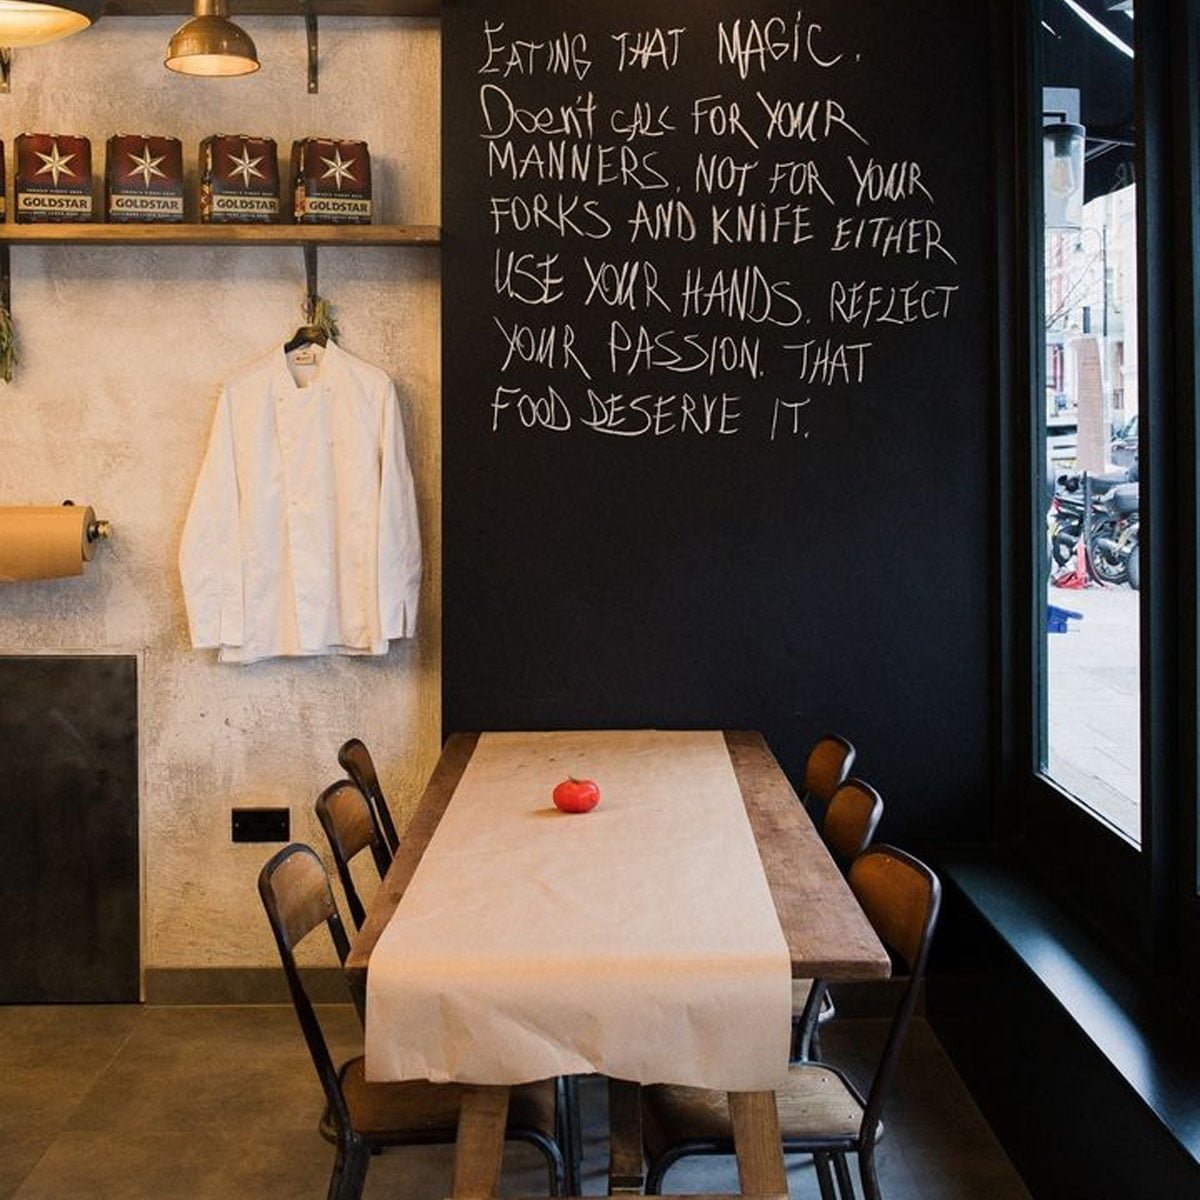 EATING THAT MAGIC.
Doen't CALL FOR YOUR
MANNERS. NOT FOR YOUR
FORKS AND KNIFE EITHER
USE YOUR HANDS. REFLECT
YOUR PASSION. THAT
FOOD DESERVE IT.
GOLDSTAR
GOLDSTAR
GOLDSTAR
GOLDSTAR